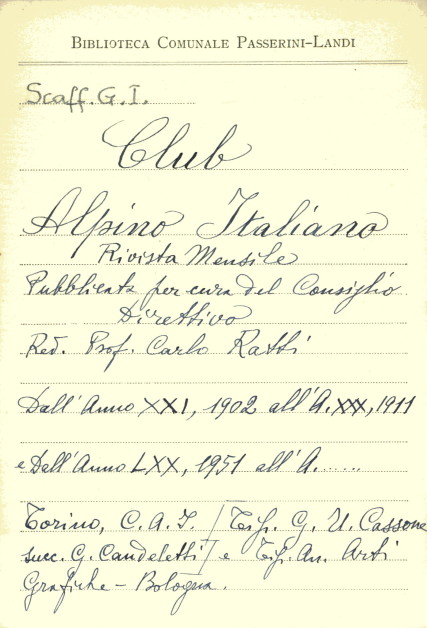 BIBLIOTECA COMUNALE PASSERINI-LANDI
Scaff. G. I.
Club
Alpino Italiano
Rivista Mensile
Pubblicata per cura del Consiglio
Direttivo
Red. Prof. Carlo Ratti
Dall'Anno XXI, 1902 all'A. XX, 1911
e Dall'Anno LXX, 1951 all'A. ......
Torino, C. A. I. / Tip. G. U. Cassone
succ. G. Candeletti / e Tip. An. Arti
Grafiche - Bologna.